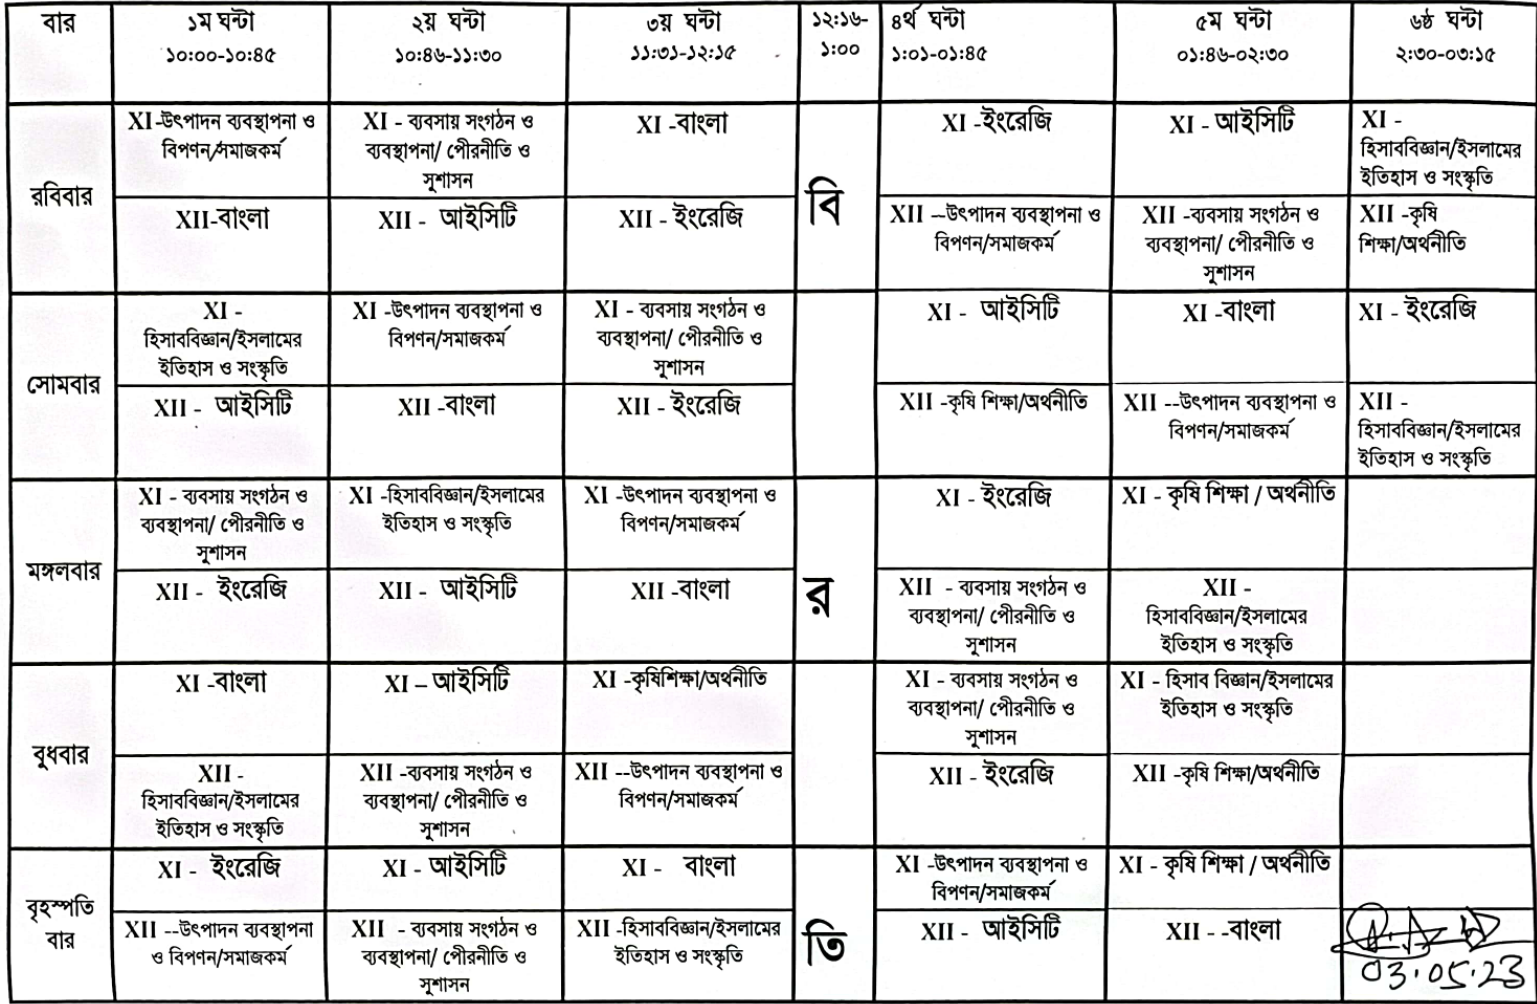 বার
১ম ঘন্টা
১০:০০-১০:৪৫
২য় ঘন্টা
১০:৪৬-১১:৩০
৩য় ঘন্টা
১১:৩১-১২:১৫
১২:১৬-
১:০০
৪র্থ ঘন্টা
১:০১-০১:৪৫
৫ম ঘন্টা
০১:৪৬-০২:৩০
৬ষ্ঠ ঘন্টা
২:৩০-০৩:১৫
রবিবার
XI-উৎপাদন ব্যবস্থাপনা ও
বিপণন/সমাজকর্ম
XI - ব্যবসায় সংগঠন ও
ব্যবস্থাপনা/ পৌরনীতি ও
সুশাসন
XI -বাংলা
XI -ইংরেজি
XI - আইসিটি
XI -
হিসাববিজ্ঞান/ইসলামের
ইতিহাস ও সংস্কৃতি
XII-বাংলা
XII - আইসিটি
XII - ইংরেজি
XII --উৎপাদন ব্যবস্থাপনা ও
বিপণন/সমাজকর্ম
XII -ব্যবসায় সংগঠন ও
ব্যবস্থাপনা/ পৌরনীতি ও
সুশাসন
XII -কৃষি
শিক্ষা/অর্থনীতি
বি
সোমবার
XI -
হিসাববিজ্ঞান/ইসলামের
ইতিহাস ও সংস্কৃতি
XI -উৎপাদন ব্যবস্থাপনা ও
বিপণন/সমাজকর্ম
XI - ব্যবসায় সংগঠন ও
ব্যবস্থাপনা/ পৌরনীতি ও
সুশাসন
XI - আইসিটি
XI -বাংলা
XI - ইংরেজি
XII - আইসিটি
XII -বাংলা
XII - ইংরেজি
XII -কৃষি শিক্ষা/অর্থনীতি
XII --উৎপাদন ব্যবস্থাপনা ও
বিপণন/সমাজকর্ম
XII -
হিসাববিজ্ঞান/ইসলামের
ইতিহাস ও সংস্কৃতি
মঙ্গলবার
XI - ব্যবসায় সংগঠন ও
ব্যবস্থাপনা/ পৌরনীতি ও
সুশাসন
XI -হিসাববিজ্ঞান/ইসলামের
ইতিহাস ও সংস্কৃতি
XI -উৎপাদন ব্যবস্থাপনা ও
বিপণন/সমাজকর্ম
XI - ইংরেজি
XI - কৃষি শিক্ষা / অর্থনীতি
XII - ইংরেজি
XII - আইসিটি
XII -বাংলা
র
XII - ব্যবসায় সংগঠন ও
ব্যবস্থাপনা/ পৌরনীতি ও
সুশাসন
XII -
হিসাববিজ্ঞান/ইসলামের
ইতিহাস ও সংস্কৃতি
বুধবার
XI -বাংলা
XI – আইসিটি
XI -কৃষিশিক্ষা/অর্থনীতি
XI - ব্যবসায় সংগঠন ও
ব্যবস্থাপনা/ পৌরনীতি ও
সুশাসন
XI - হিসাব বিজ্ঞান/ইসলামের
ইতিহাস ও সংস্কৃতি
XII -
হিসাববিজ্ঞান/ইসলামের
ইতিহাস ও সংস্কৃতি
XII -ব্যবসায় সংগঠন ও
ব্যবস্থাপনা/ পৌরনীতি ও
সুশাসন
XII --উৎপাদন ব্যবস্থাপনা ও
বিপণন/সমাজকর্ম
XII - ইংরেজি
XII -কৃষি শিক্ষা/অর্থনীতি
বৃহস্পতি
বার
XI - ইংরেজি
XI - আইসিটি
XI - বাংলা
XI -উৎপাদন ব্যবস্থাপনা ও
বিপণন/সমাজকর্ম
XI - কৃষি শিক্ষা / অর্থনীতি
XII --উৎপাদন ব্যবস্থাপনা
ও বিপণন/সমাজকর্ম
XII - ব্যবসায় সংগঠন ও
ব্যবস্থাপনা/ পৌরনীতি ও
সুশাসন
XII -হিসাববিজ্ঞান/ইসলামের
ইতিহাস ও সংস্কৃতি
তি
XII - আইসিটি
XII - -বাংলা
03.05.23